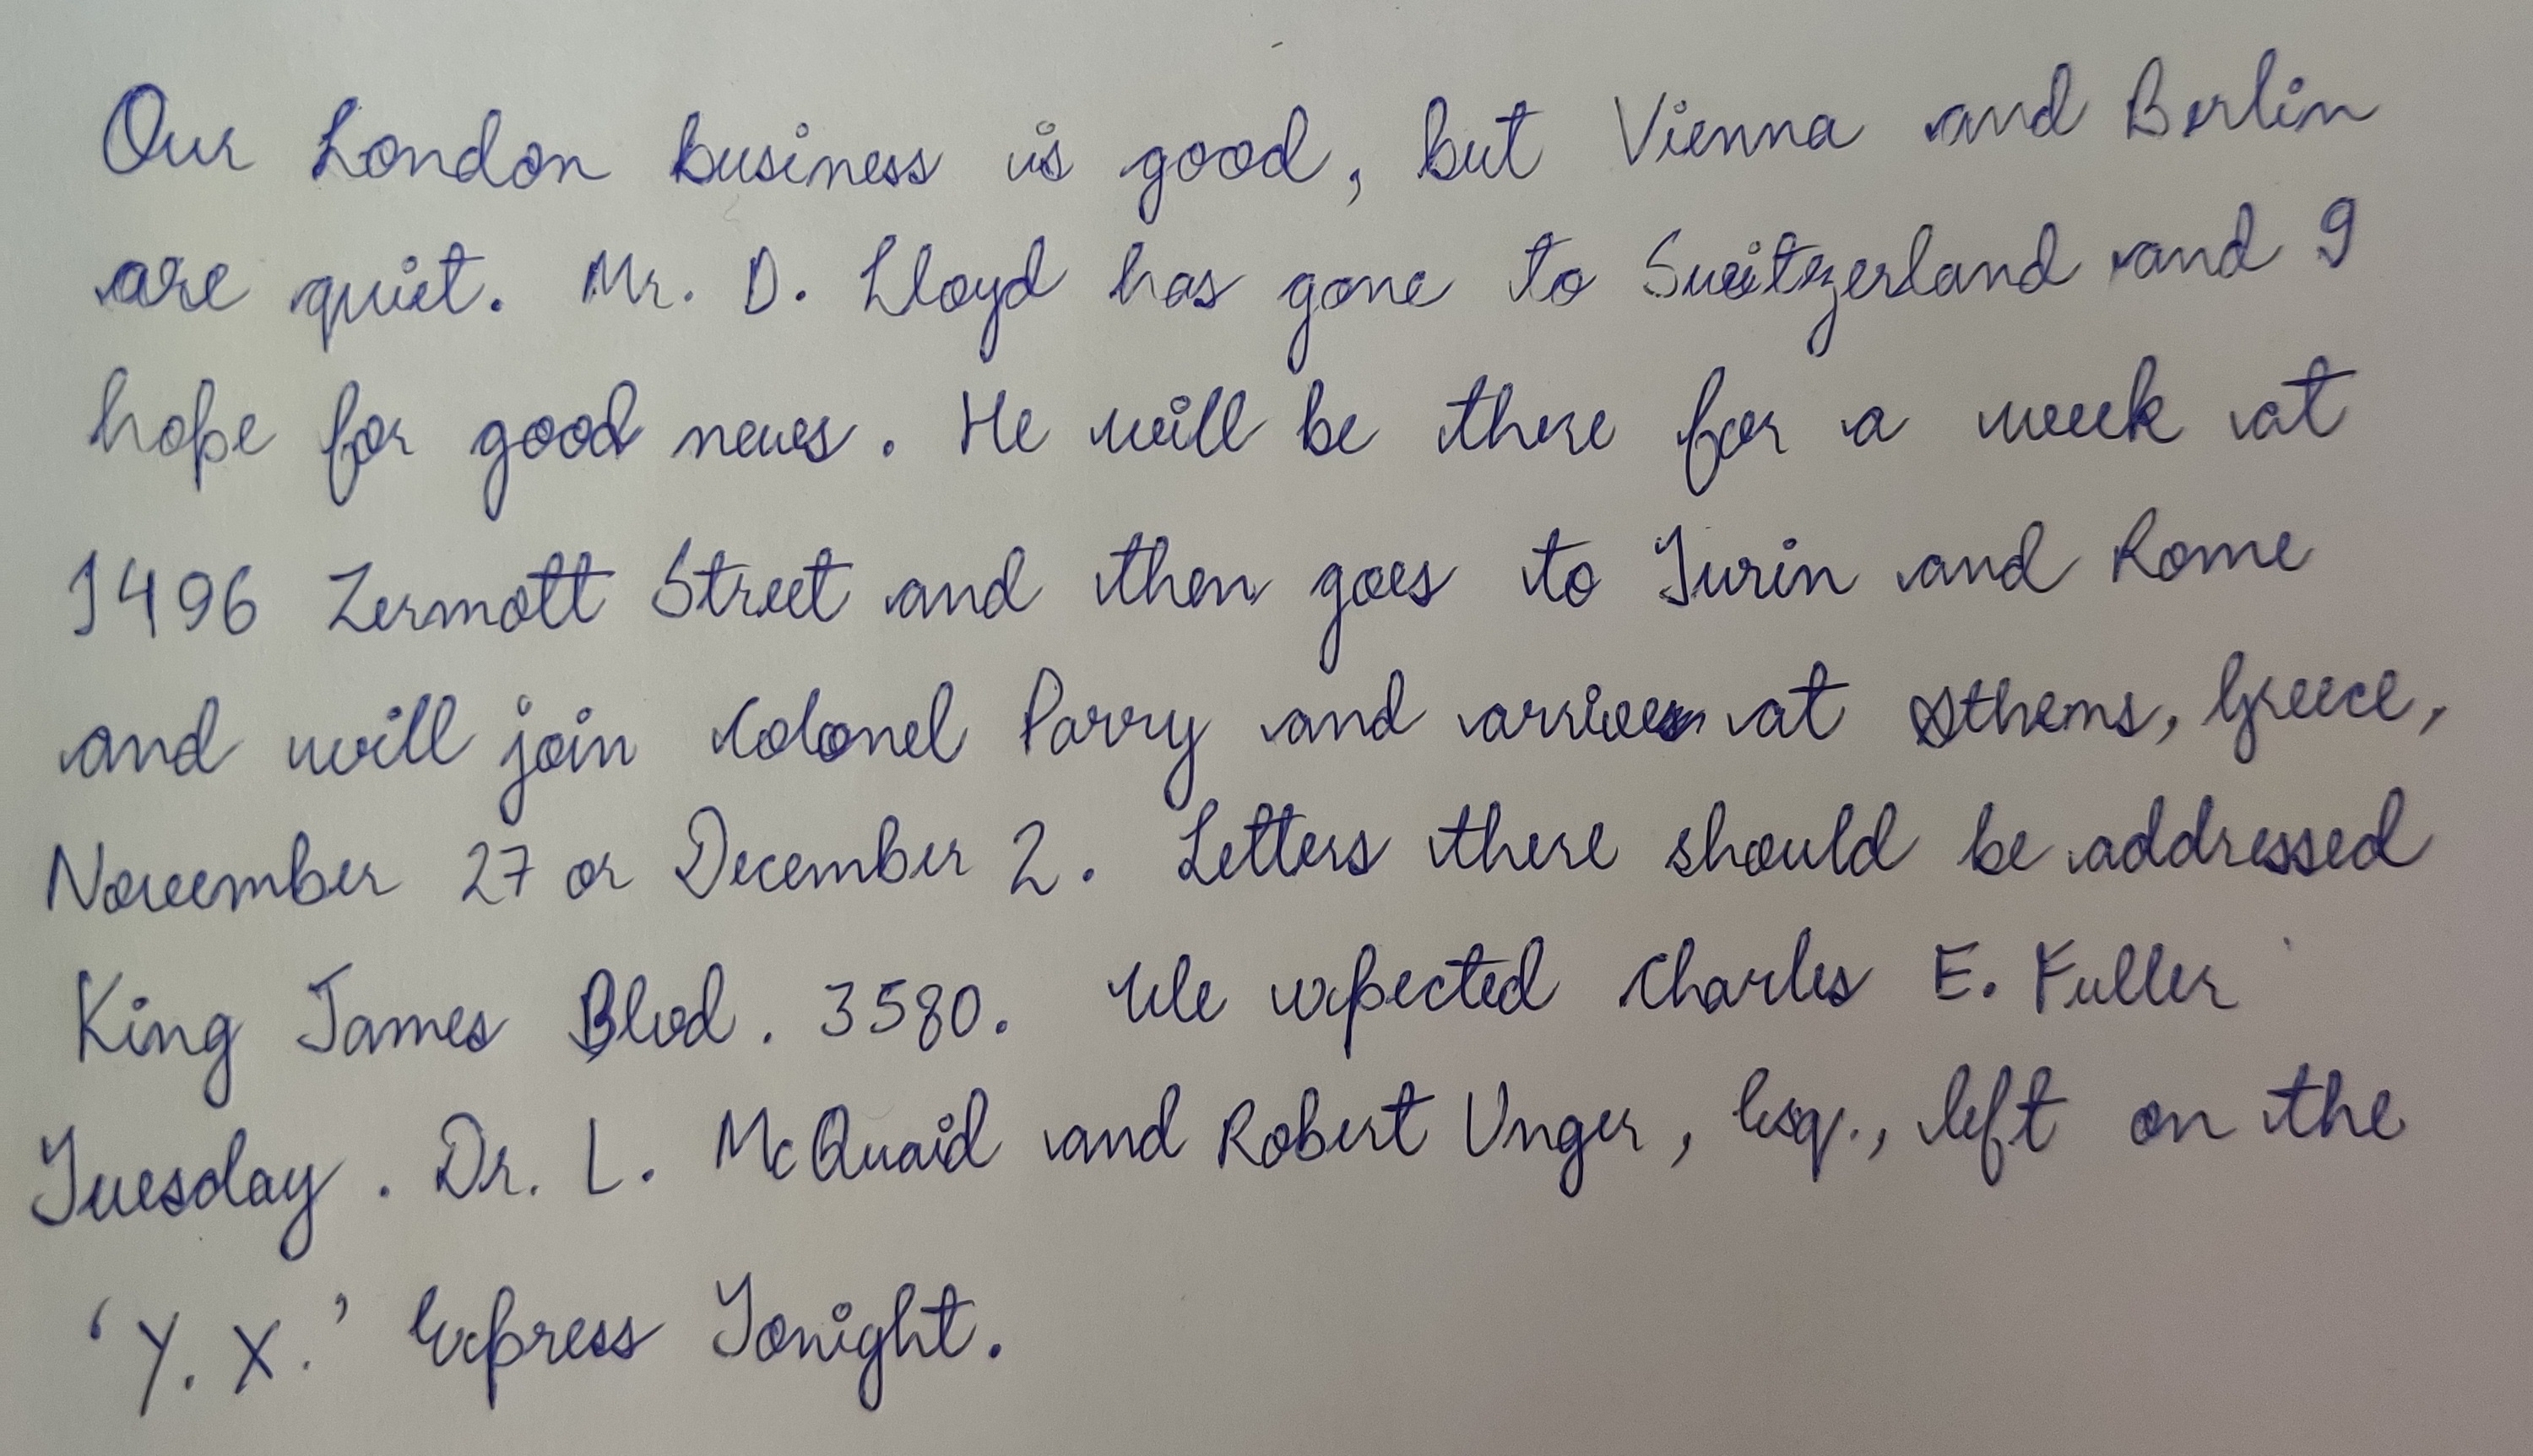 Our London business is good, but Vienna and Berlin
are quiet. Mr. D. Lloyd has gone to Switzerland and I
hope for good news. He will be there for a week at
1496 Zermott Street and then goes to Turin and Rome
and will join Colonel Parry and arrives at Athens, Greece,
November 27 or December 2. Letters there should be addressed
King James Blvd. 3580. We expected Charles E. Fuller
Tuesday. Dr. L. McQuaid and Robert Unger, Esq., left on the
'Y. X.' Express Tonight.